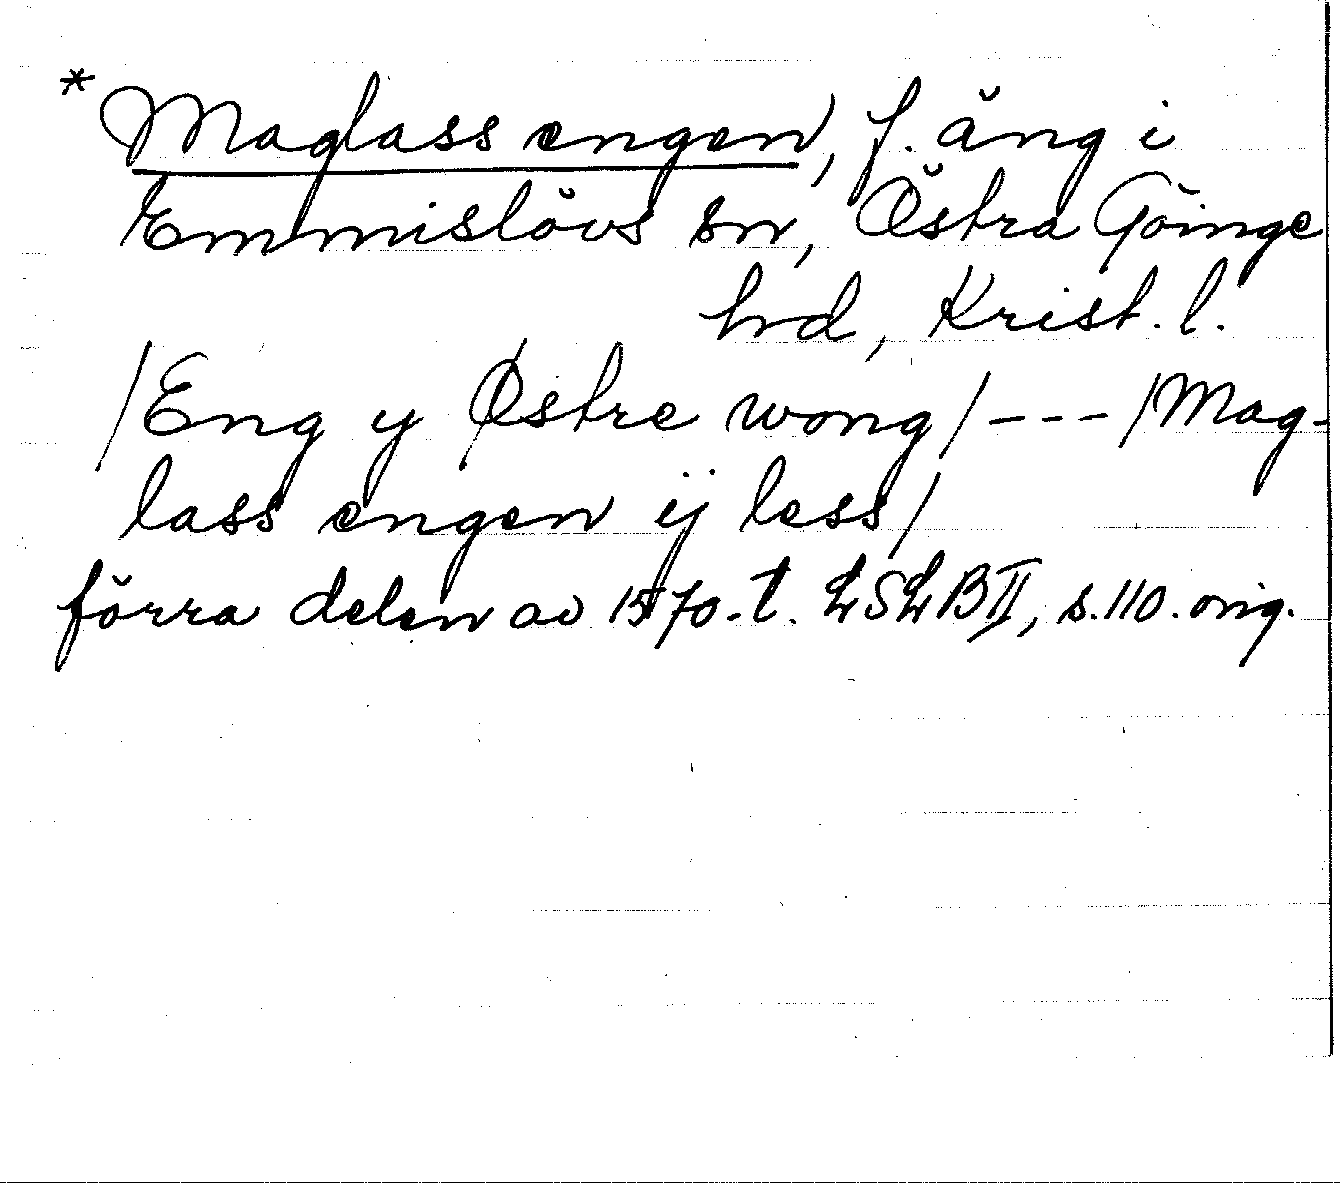 *Maglass engen, f. äng i
Emmislövs sn, Östra Göinge
hrd, Krist. l.
/Eng y Østre wong/ --- /Mag-
lass engen ij less/
förra delen av 1570-t. LSLB II, s. 110. orig.